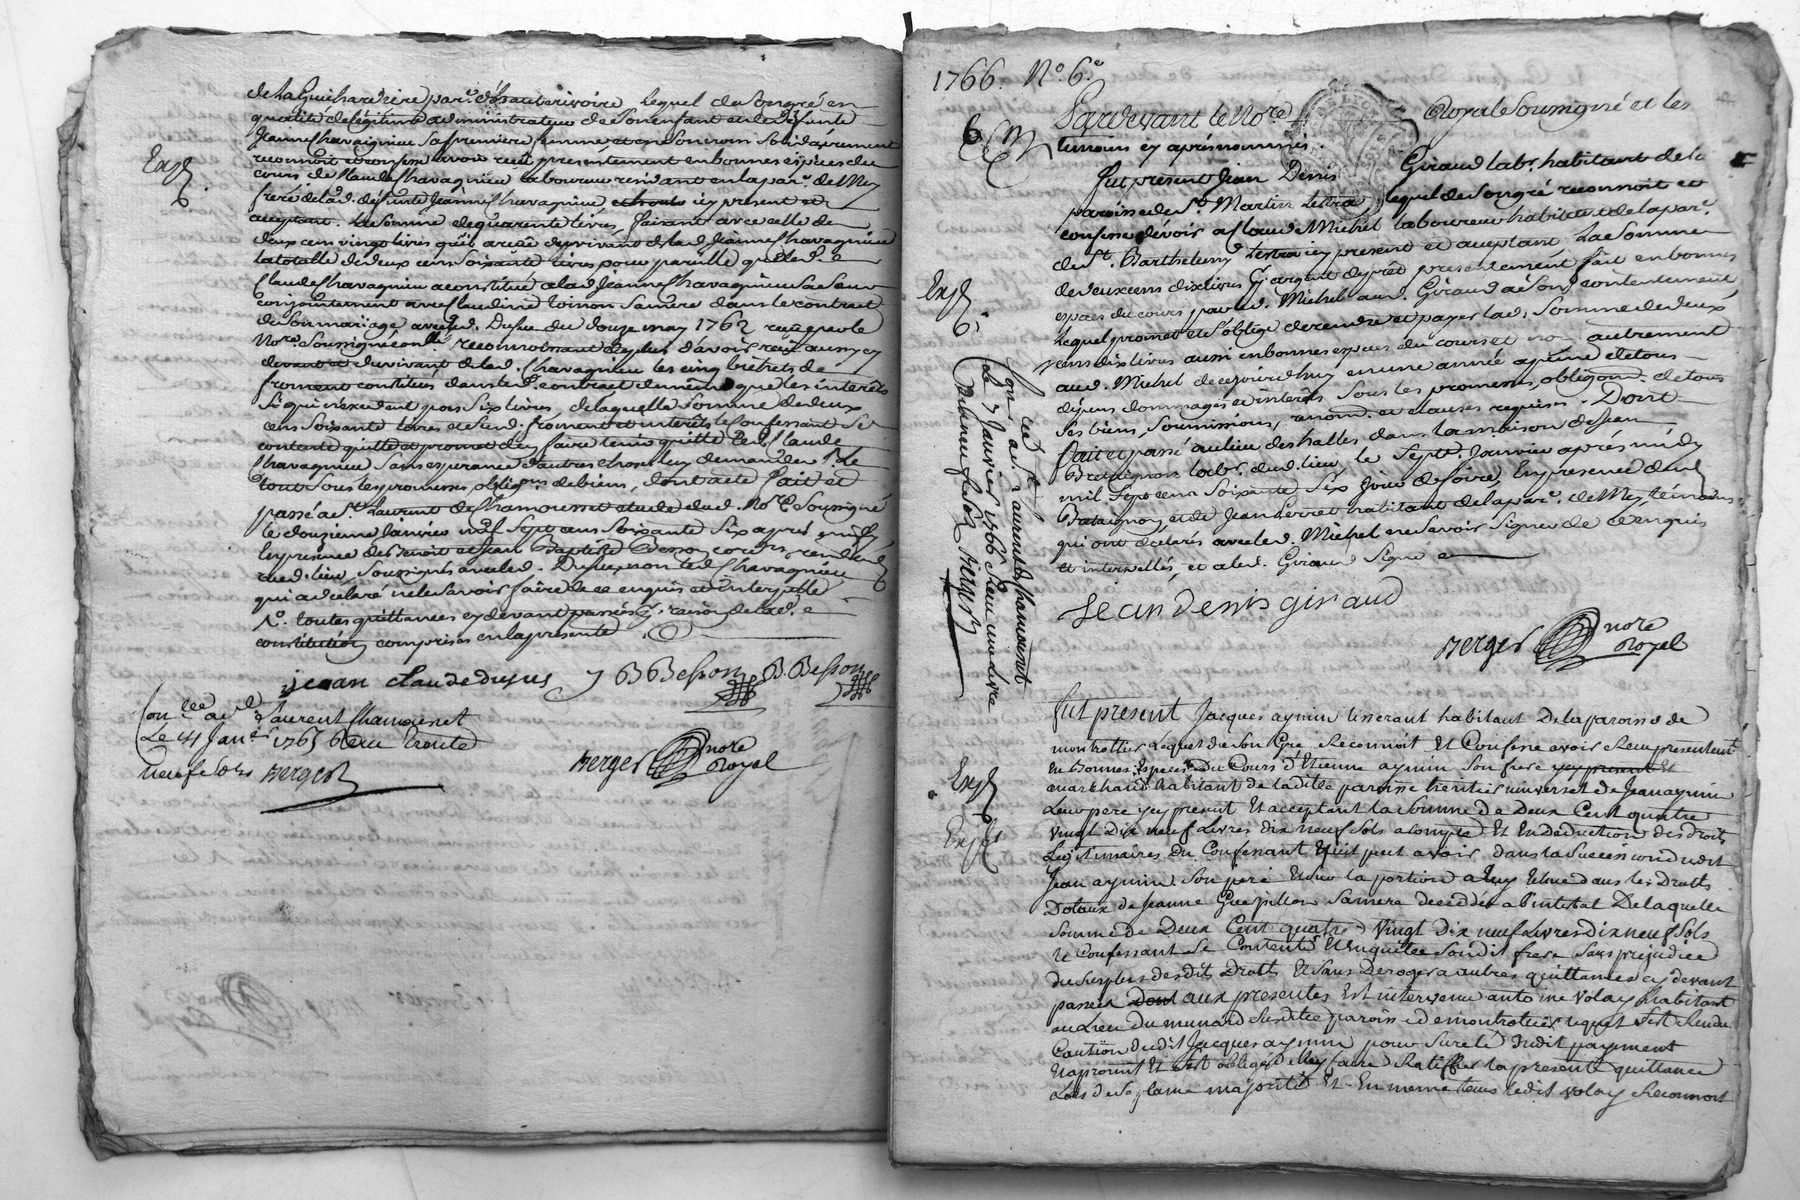 de la Guihardiere par.e d'hauterivoire, lequel de son gré en
qualité de légitime administrateur de son enfant et de défunte
Jeanne Chavagnieu sa premiere femme et en son nom solidairement
reconnoit et confesse avoir reçu presentement en bonnes espèces du
cours de Claude Chavagnieu laboureur residant en la par.e de Mey
frere de lad. défunte Jeanne Chavagnieu icy present et
acceptant. La somme de quarente livres, faisant avec celle de
deux cens vingt livres qu'il a reçue du vivant de lad. Jeanne Chavagnieu
la totalle de deux cens soixante livres pour pareille que led.
Claude Chavagnieu a constitué a lad. Jeanne Chavagnieu sa sœur
conjointement avec Claudine Toinon sa mère dans le contract
de son mariage avec led. Dupuy du douze may 1762 reçu par le
No.re soussigné reconnoissant de plus d'avoir reçu aussy cy
devant du vivant de lad. Chavagnieu les cinq bichets de
froment constitués dans led. contract de même que les interêts
qui n'excedent pas six livres, de laquelle somme de deux
cens soixante livres et led. froment et interêts le confessant se
contente quitte et promet den faire tenir quitte led. Claude
Chavagnieu sans esperance d'autre chose luy demander. Le
tout sous les promesses, obligons de biens, dont acte fait et
passé a St. Laurent de Chamousset etude dud. No.re soussigné
le douzieme Janvier mil sept cens soixante six après midy
En presence de Benoit et Jean Baptiste Besson
aud. lieu, soussignés avec led. Dupuy non led. Chavagnieu
qui a declaré ne le savoir faire de ce enquis et interpellé
toutes quittances cy devant passées raison de lad.
constitution comprises en la presente
jean claude dupuis J B Besson B. Besson
Con.lée a St. Laurent Chamousset
Le 14 Jan.er 1766 Reçu trente
neuf sols Berger
Berger no.re Royal
Exp.
1766. N.o 6.e
Pardevant le No.re Royal Soussigné et les
temoins cy après nommés.
fut present Jean Denis Giraud lab.r habitant de la
paroisse de St. Martin Lestra lequel de son gré reconnoit et
confesse devoir a Claude Michel laboureur habitant de la par.e
de St. Barthelemy Lestra icy present et acceptant La Somme
de deux cens dix livres argent de prêt presentement fait en bonnes
espèces du cours par led. Michel aud. Giraud a son contentement,
Lequel promet et s'oblige de rendre et payer lad. Somme de deux
cens dix livres aussi en bonnes espèces du cours et non autrement
aud. Michel de cejourd'huy en une année a peine de tous
dépens dommages et interêts sous les promesses, obligaon. de tous
ses biens, soumissions, renon. et clauses requises. Dont
fait et passé au lieu des halles dans la maison de Jean
Bretaignon lab.r dud. lieu, le Sept.e Janvier après midy
mil sept cens soixante six jour de foire, En presence dud.
Bretaignon et de Jean Ferret habitant de la par.e de Mey, témoins
qui ont declarés avec led. Michel ne savoir signer de ce enquis
et interpellés, et a led. Giraud signé
Jean denis giraud
Berger no.re Royal
Exp.
Con.lée a St. Laurent de Chamousset
Le 9 Janvier 1766 Reçu une livre
Berger
fut present Jacques aymin tisserant habitant De la paroisse de
montrottier Lequel de son Gré Reconnoit Et Confesse avoir Reçu presentement
En Bonnes Especes Du Cours d'Etienne aymin son frere
marchand habitant de ladite paroisse heritier universel de Jean aymin
Leur pere icy present Et acceptant la somme de Deux Cent quatre
vingt Dix neuf Livres dix neuf sols a compte Et En Deduction des droits
Legitimaires Du Confessant Qu'il peut avoir dans la Succession dudit
Jean aymin Son pere Et sur la portion a luy Echue dans les Droits
Dotaux de Jeanne Guepillon Sa mere decedée ab intestat De laquelle
Somme de Deux Cent quatre Vingt Dix neuf Livres dix neuf sols
le Confessant Se Contente Et En quitte Sondit frere Sans prejudice
du surplus desdits Droits Et Sans Deroger a autres quittances cy devant
passées aux presentes Est intervenu antoine volay habitant
au Lieu du munard susdite paroisse de montrottier lequel s'est Rendu
Caution dudit Jacques aymin pour sureté dudit payement
Et a promis Et s'est obligé de luy faire Ratiffier la presente quittance
Lors de sa plaine majorité Et En meme tems ledit volay Reconnoit
Exp.
Exp.